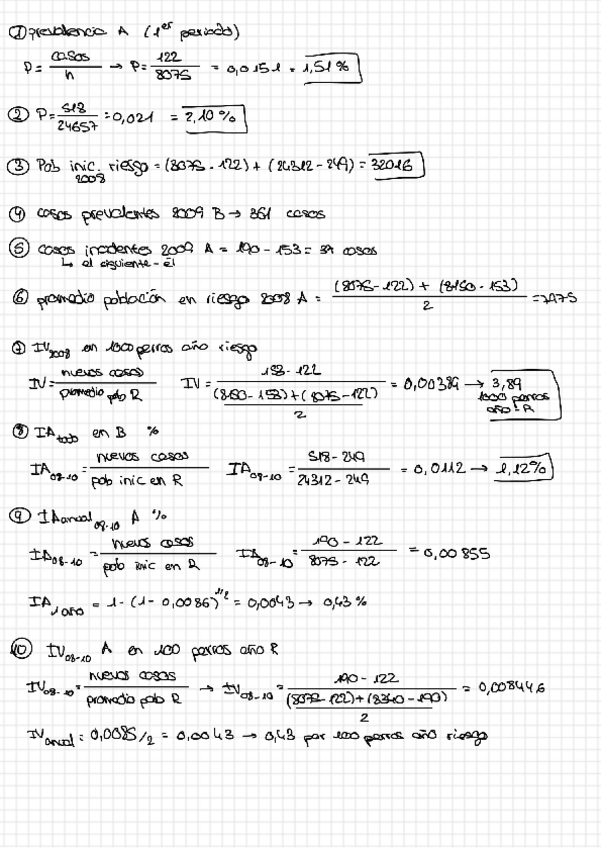 ① prevalencia A (1er periodo)
P = casos / n → P = 122 / 8075 = 0,0151 = 1,51 %
② P = 518 / 24657 = 0,021 = 2,10 %
③ Pob inic. riesgo 2008 = (8075 - 122) + (24312 - 249) = 32016
④ casos prevalentes 2009 B → 361 casos
⑤ casos incidentes 2009 A = 190 - 153 = 37 casos
↳ el siguiente - él
⑥ promedio población en riesgo 2008 A = (8075 - 122) + (8150 - 153) / 2 = 7975
⑦ IV2008 en 1000 perros año riesgo
IV = nuevos casos / promedio pob R IV = 153 - 122 / (8150 - 153) + (8075 - 122) / 2 = 0,00389 → 3,89 1000 perros año - R
⑧ IAtotal en B %
IA08-10 = nuevos casos / pob inic en R IA08-10 = 518 - 249 / 24312 - 249 = 0,0112 → 1,12%
⑨ IAanual08-10 A %
IA08-10 = nuevos casos / pob inic en R IA08-10 = 190 - 122 / 8075 - 122 = 0,00855
IA1 año = 1 - (1 - 0,0086)^1/2 = 0,0043 → 0,43 %
⑩ IV08-10 A en 100 perros año R
IV08-10 = nuevos casos / promedio pob R → IV08-10 = 190 - 122 / (8075 - 122) + (8340 - 190) / 2 = 0,008446
IVanual = 0,0085/2 = 0,0043 → 0,43 por 100 perros año riesgo